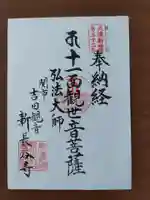 奉納経
十一面観世音菩薩
弘法大師
関市
吉田観音
新長谷寺